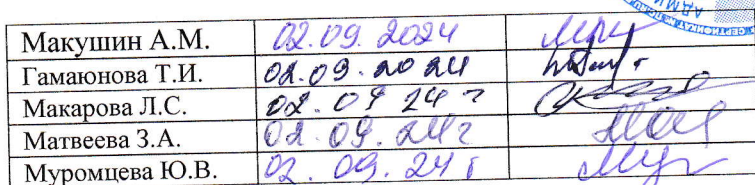 Макушин А.М. 02.09.2024
Гамаюнова Т.И. 02.09.2024
Макарова Л.С. 02.09 24 г
Матвеева З.А. 02.09.24г
Муромцева Ю.В. 02.09.24г